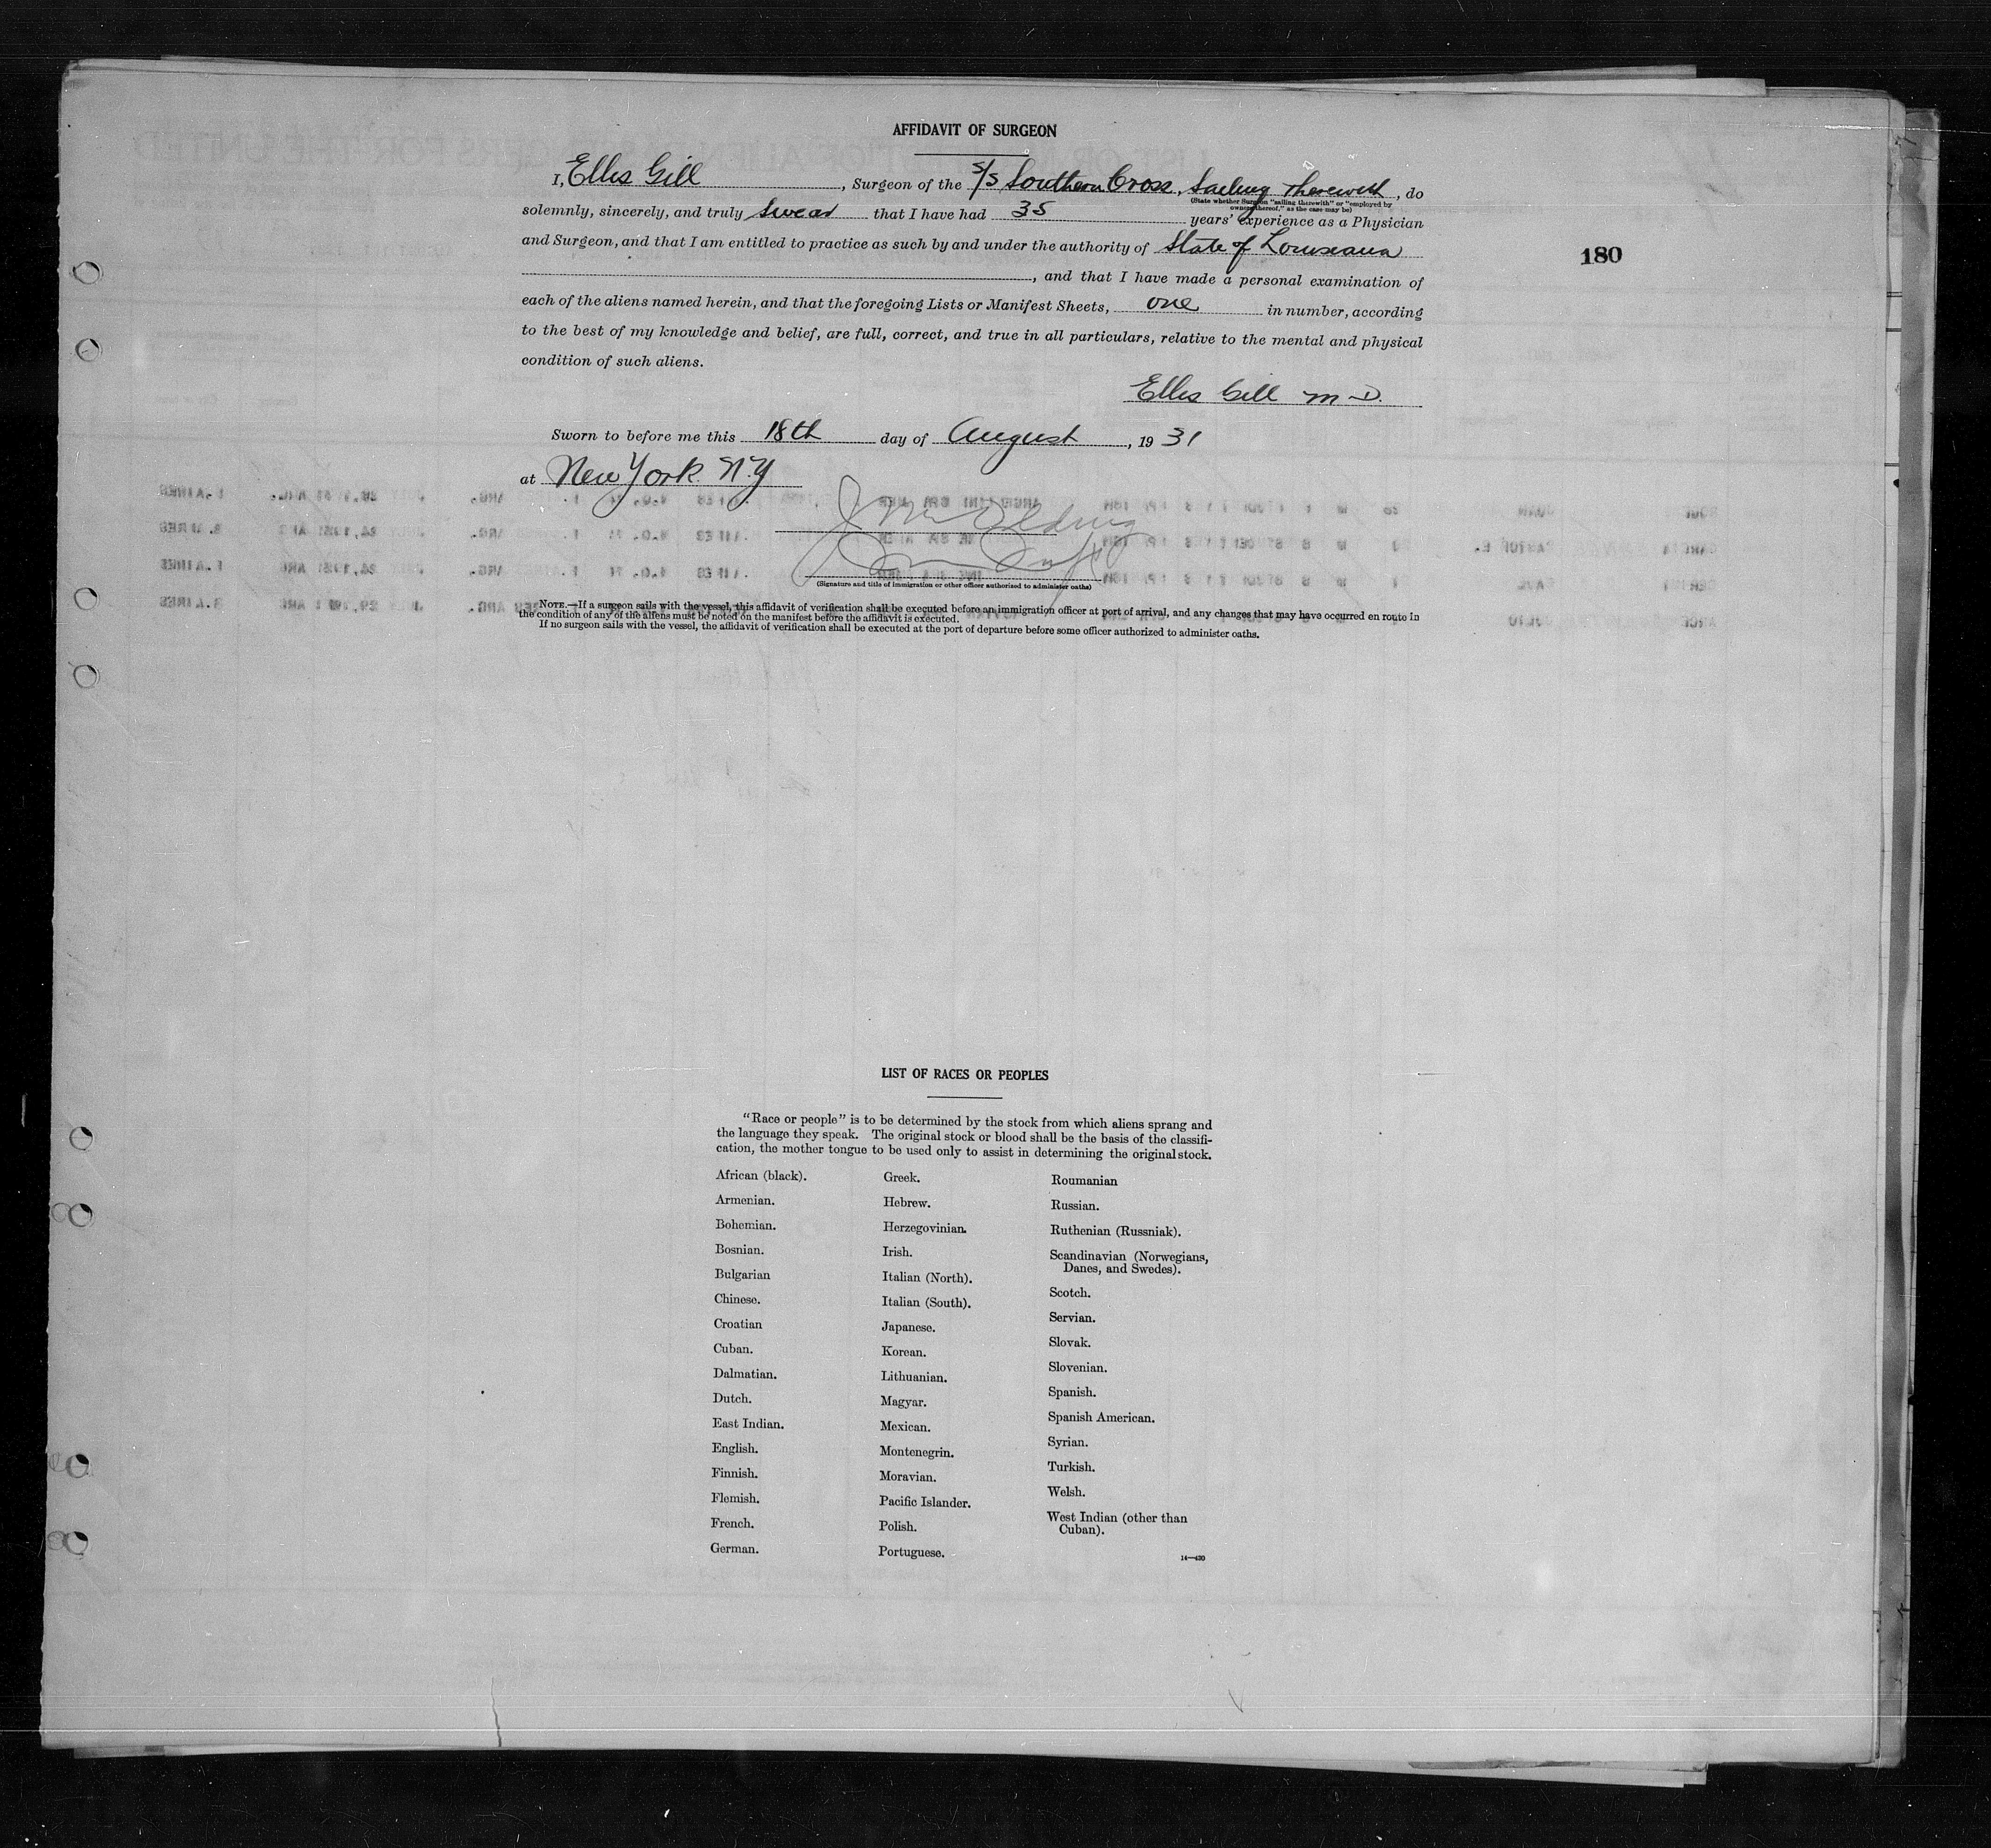 AFFIDAVIT OF SURGEON
I, Ellis Gill, Surgeon of the S/S Southern Cross, Sailing Therewith, do
(State whether Surgeon "sailing therewith" or "employed by
owners thereof," as the case may be)
solemnly, sincerely, and truly swear that I have had 35 years' experience as a Physician
and Surgeon, and that I am entitled to practice as such by and under the authority of State of Louiseana
180
, and that I have made a personal examination of
each of the aliens named herein, and that the foregoing Lists or Manifest Sheets, one in number, according
to the best of my knowledge and belief, are full, correct, and true in all particulars, relative to the mental and physical
condition of such aliens.
Ellis Gill M.D.
Sworn to before me this 18th day of August, 1931
at New York. N.Y
(Signature and title of immigration or other officer authorized to administer oaths)
NOTE.—If a surgeon sails with the vessel, this affidavit of verification shall be executed before an immigration officer at port of arrival, and any changes that may have occurred en route in
the condition of any of the aliens must be noted on the manifest before the affidavit is executed.
If no surgeon sails with the vessel, the affidavit of verification shall be executed at the port of departure before some officer authorized to administer oaths.
LIST OF RACES OR PEOPLES
"Race or people" is to be determined by the stock from which aliens sprang and
the language they speak. The original stock or blood shall be the basis of the classifi-
cation, the mother tongue to be used only to assist in determining the original stock.
African (black).
Armenian.
Bohemian.
Bosnian.
Bulgarian
Chinese.
Croatian
Cuban.
Dalmatian.
Dutch.
East Indian.
English.
Finnish.
Flemish.
French.
German.
Greek.
Hebrew.
Herzegovinian.
Irish.
Italian (North).
Italian (South).
Japanese.
Korean.
Lithuanian.
Magyar.
Mexican.
Montenegrin.
Moravian.
Pacific Islander.
Polish.
Portuguese.
Roumanian
Russian.
Ruthenian (Russniak).
Scandinavian (Norwegians,
Danes, and Swedes).
Scotch.
Servian.
Slovak.
Slovenian.
Spanish.
Spanish American.
Syrian.
Turkish.
Welsh.
West Indian (other than
Cuban).
14—430